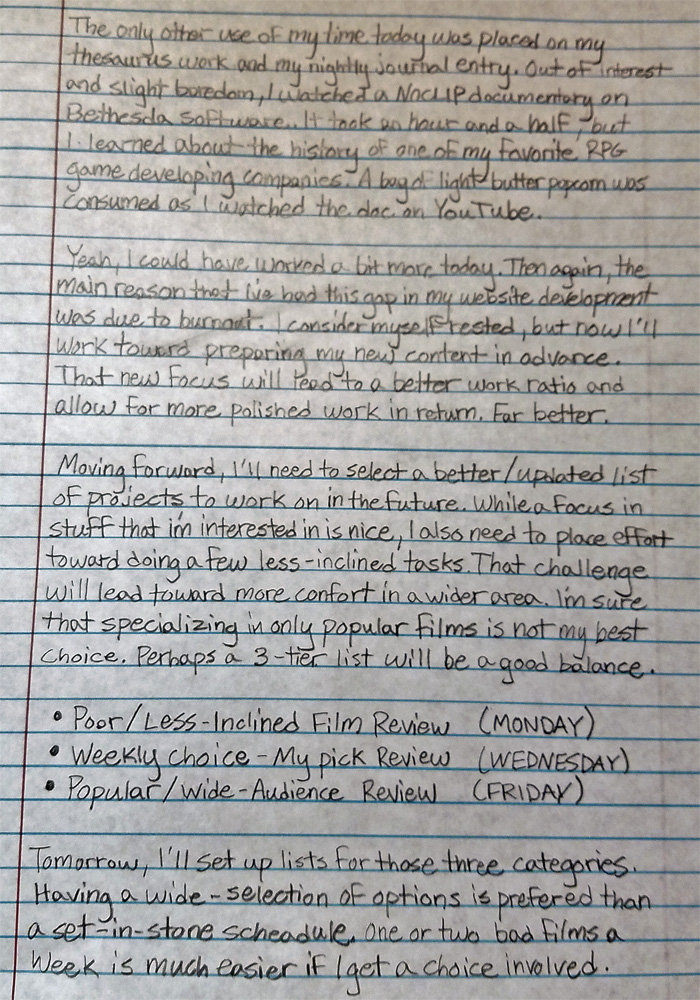 The only other use of my time today was placed on my
thesaurus work and my nightly journal entry. Out of interest
and slight boredom, I watched a NoClip documentary on
Bethesda Software. It took an hour and a half, but
I learned about the history of one of my favorite RPG
game developing companies. A bag of light butter popcorn was
consumed as I watched the doc on YouTube.

Yeah, I could have worked a bit more today. Then again, the
main reason that I've had this gap in my website development
was due to burnout. I consider myself rested, but now I'll
work toward preparing my new content in advance.
That new focus will lead to a better work ratio and
allow for more polished work in return. Far better.

Moving forward, I'll need to select a better/updated list
of projects to work on in the future. While a focus in
stuff that i'm interested in is nice, I also need to place effort
toward doing a few less-inclined tasks. That challenge
will lead toward more confort in a wider area. I'm sure
that specializing in only popular films is not my best
choice. Perhaps a 3-tier list will be a good balance.

• Poor/Less-Inclined Film Review (MONDAY)
• Weekly choice - My pick Review (WEDNESDAY)
• Popular/Wide-Audience Review (FRIDAY)

Tomorrow, I'll set up lists for those three categories.
Having a wide-selection of options is prefered than
a set-in-stone scheadule. One or two bad films a
week is much easier if I get a choice involved.